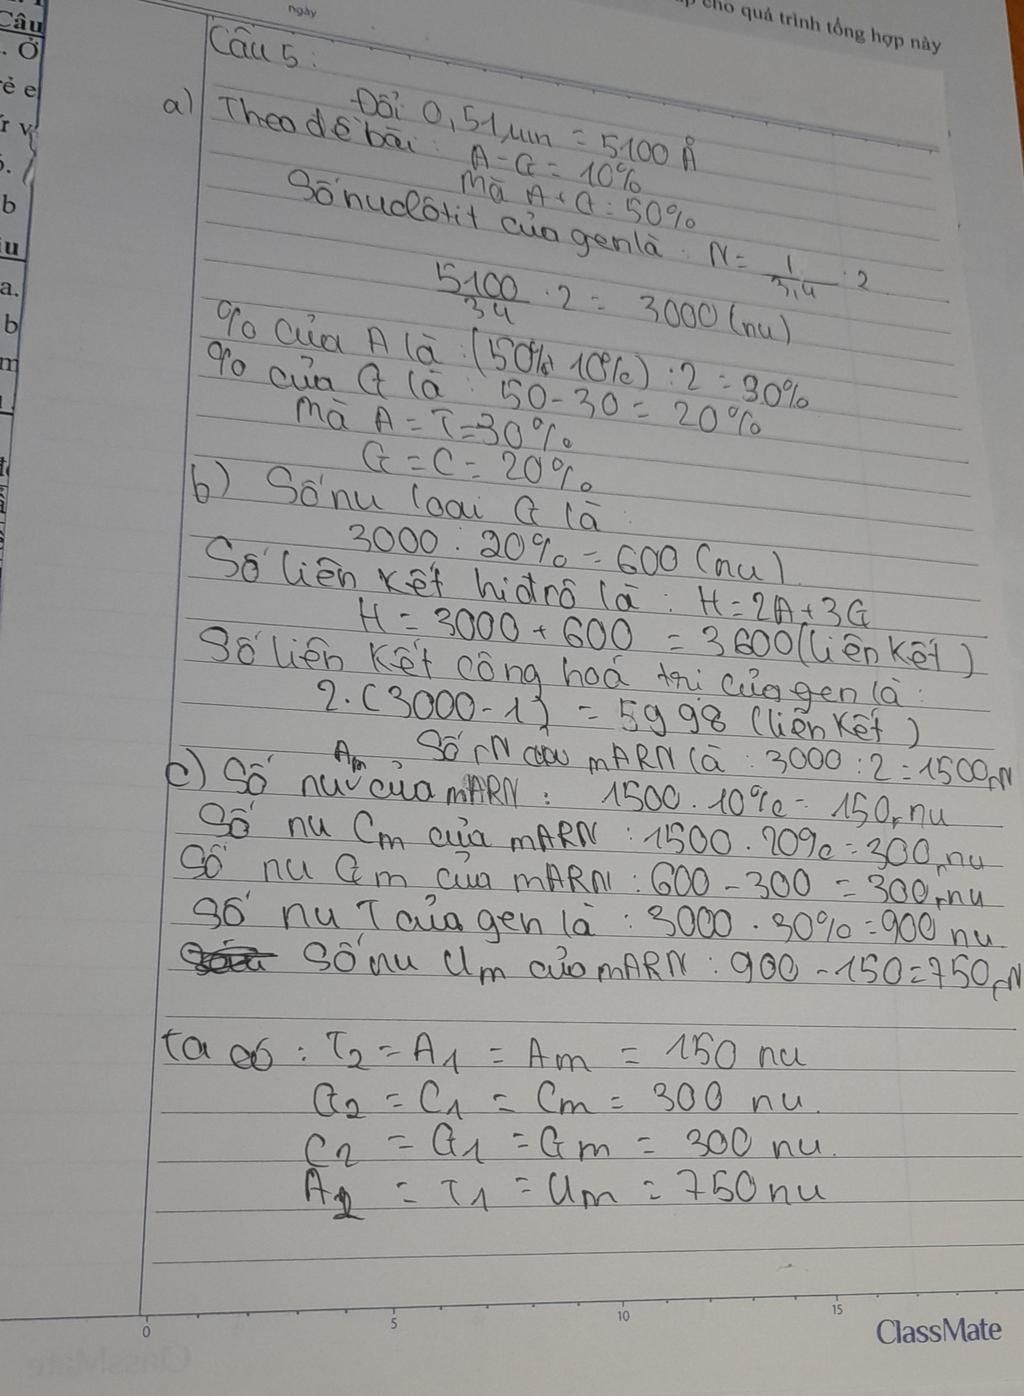 Câu
. Ở
ẻ e
r v
b
u
a.
b
m
ngày
cho quá trình tổng hợp này
Câu 5:
Đổi 0,51 µm = 5100 Å
a) Theo đề bài: A - G = 10%
Mà A + G = 50%
Số nuclôtit của gen là: N = 1/3,4 . 2
5100/34 . 2 = 3000 (nu)
% của A là: (50% + 10%) : 2 = 30%
% của G là: 50 - 30 = 20%
Mà A = T = 30%
G = C = 20%
b) Số nu loại G là:
3000 . 20% = 600 (nu)
Số liên kết hiđrô là: H = 2A + 3G
H = 3000 + 600 = 3600 (liên kết)
Số liên kết công hoá trị của gen là:
2.(3000 - 1) = 5998 (liên kết)
Số rN của mARN là: 3000 : 2 = 1500 rN
c) Số nu Am của mARN: 1500 . 10% = 150 rnu
Số nu Cm của mARN: 1500 . 20% = 300 rnu
Số nu Gm của mARN: 600 - 300 = 300 rnu
Số nu T của gen là: 3000 . 30% = 900 nu
Số nu Um của mARN: 900 - 150 = 750 rN
ta có: T2 = A1 = Am = 150 nu
G2 = C1 = Cm = 300 nu.
C2 = G1 = Gm = 300 nu.
A2 = T1 = Um = 750 nu
0 5 10 15
ClassMate